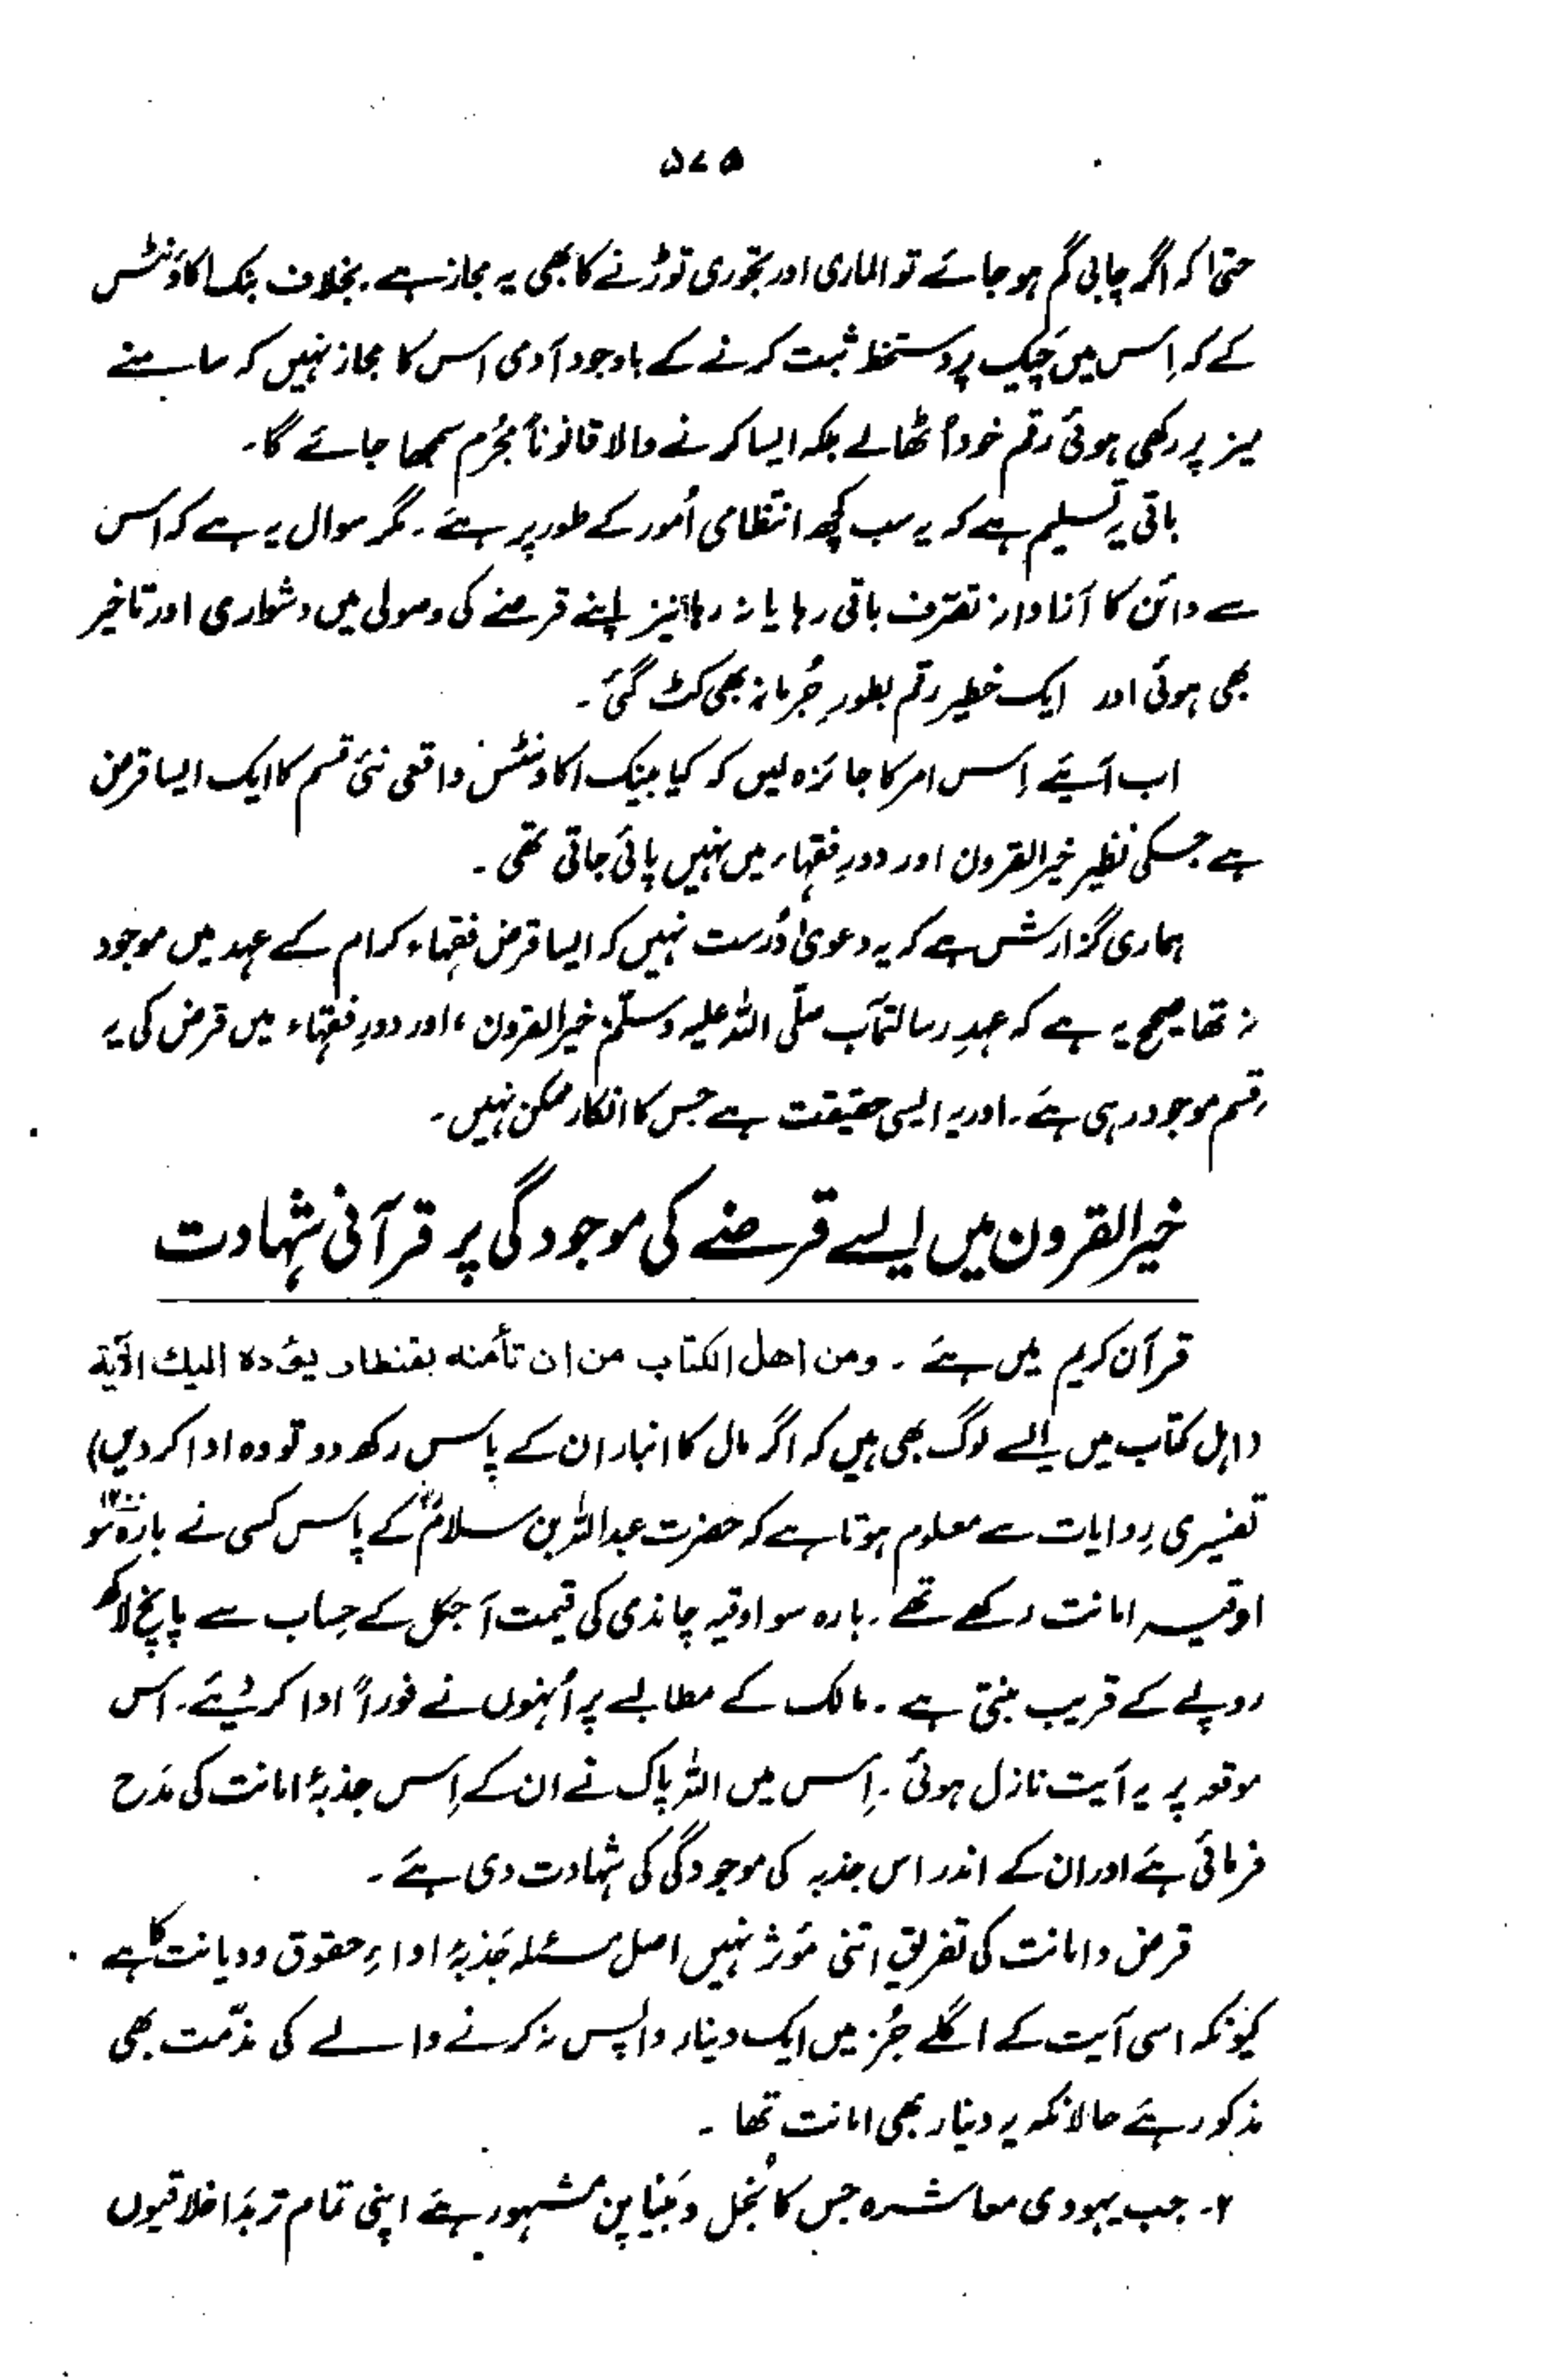 ۵۷۵
حتیٰ کہ اگر چابی گم ہو جائے تو الماری اور تجوری توڑنے کا بھی یہ مجاز ہے۔ بخلاف بنک اکاؤنٹس
کے کہ اِس میں چَیک پر دستخط ثبت کرنے کے باوجود آدمی اس کا مجاز نہیں کہ سامنے
میز پر رکھی ہوئی رقم خود اُٹھا لے بلکہ ایسا کرنے والا قانوناً مجُرم سمجھا جائے گا۔
باقی یہ تسلیم ہے کہ یہ سب کچھ انتظامی اُمور کے طور پر ہے۔ مگر سوال یہ ہے کہ اس
سے دائن کا آزادانہ تصرّف باقی رہا یا نہ رہا نیز اپنے قرضے کی وصولی میں دشواری اور تاخیر
بھی ہوئی اور ایک خطیر رقم بطورِ جُرمانہ بھی کٹ گئی۔
اب آئیے اِس امر کا جائزہ لیں کہ کیا بینک اکاونٹس واقعی نئی قسم کا ایک ایسا قرض
ہے جسکی نظیر خیرالقرون اور دورِ فقہاء میں نہیں پائی جاتی تھی۔
ہماری گزارش ہے کہ یہ دعویٰ دُرست نہیں کہ ایسا قرض فقہاء کرام کے عہد میں موجود
نہ تھا صحیح یہ ہے کہ عہدِ رسالتمآب صلّی اللہ علیہ وسلّم، خیرالقرون، اور دورِ فقہاء میں قرض کی یہ
قسم موجود رہی ہے۔ اور یہ ایسی حقیقت ہے جس کا انکار ممکن نہیں۔
خیرالقرون میں ایسے قرضے کی موجودگی پر قرآنی شہادت
قرآن کریم میں ہے۔ ومن اهل الكتاب من ان تأمنه بقنطار يؤده اليك الآية
(اہل کتاب میں ایسے لوگ بھی ہیں کہ اگر مال کا انبار ان کے پاس رکھ دو تو وہ ادا کر دیں)
تفسیری روایات سے معلوم ہوتا ہے کہ حضرت عبداللہ بن سلامؓ کے پاس کسی نے بارہ سو ۱۲۰۰
اوقیہ امانت رکھے تھے۔ بارہ سو اوقیہ چاندی کی قیمت آجکل کے حِساب سے پانچ لاکھ
روپے کے قریب بنتی ہے۔ مالک کے مطالبے پر اُنہوں نے فوراً ادا کر دیئے۔ اس
موقعہ پر یہ آیت نازل ہوئی۔ اِس میں اللہ پاک نے ان کے اِس جذبۂ امانت کی مَدح
فرمائی ہے اور ان کے اندر اس جذبہ کی موجودگی کی شہادت دی ہے۔
قرض و امانت کی تفریق اتنی مؤثر نہیں اصل مسئلہ جَذبۂ اداءِ حقوق و دیانت کا ہے۔
کیونکہ اسی آیت کے اگلے جُز میں ایک دینار واپس نہ کرنے والے کی مذمّت بھی
مذکور ہے حالانکہ یہ دینار بھی امانت تھا۔
۲۔ جب یہودی معاشرہ جس کا بُخل و بَنیا پن مشہور ہے اپنی تمام تر بَداخلاقیوں